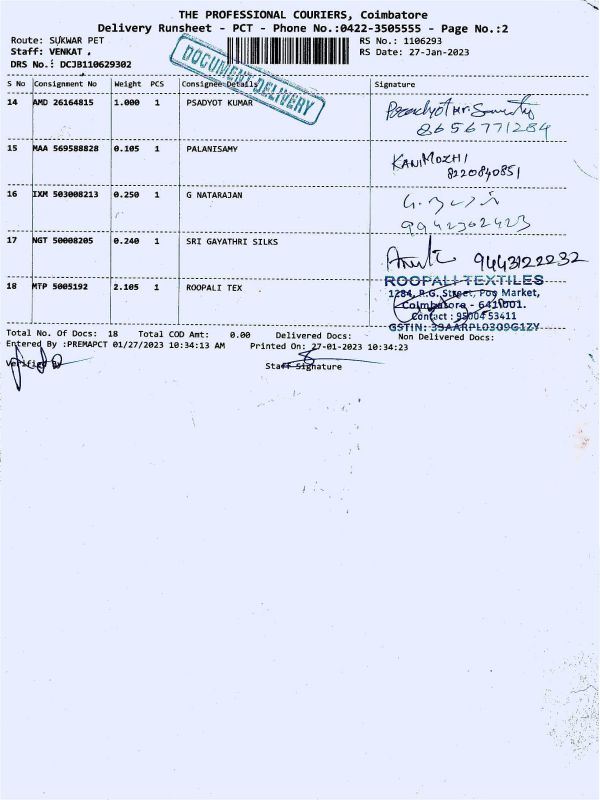 THE PROFESSIONAL COURIERS, Coimbatore
Delivery Runsheet - PCT - Phone No.:0422-3505555 - Page No.:2
Route: SUKWAR PET
RS No.: 1106293
Staff: VENKAT .
RS Date: 27-Jan-2023
DRS No.: DCJB110629302
DOCUMENT DELIVERY
S No Consignment No Weight PCS Consignee Details Signature
14 AMD 26164815 1.000 1 PSADYOT KUMAR
8656771284
15 MAA 569588828 0.105 1 PALANISAMY KANIMOZHI
8220840851
16 IXM 503008213 0.250 1 G NATARAJAN
9942302423
17 NGT 50008205 0.240 1 SRI GAYATHRI SILKS 9443122232
18 MTP 5005192 2.105 1 ROOPALI TEX
ROOPALI TEXTILES
1284, R.G. Street, Poo Market,
Coimbatore - 641001.
Contact : 95004 53411
GSTIN: 33AARPL0309G1ZY
Total No. Of Docs: 18 Total COD Amt: 0.00 Delivered Docs: Non Delivered Docs:
Entered By :PREMAPCT 01/27/2023 10:34:13 AM Printed On: 27-01-2023 10:34:23
Verified By
Staff Signature